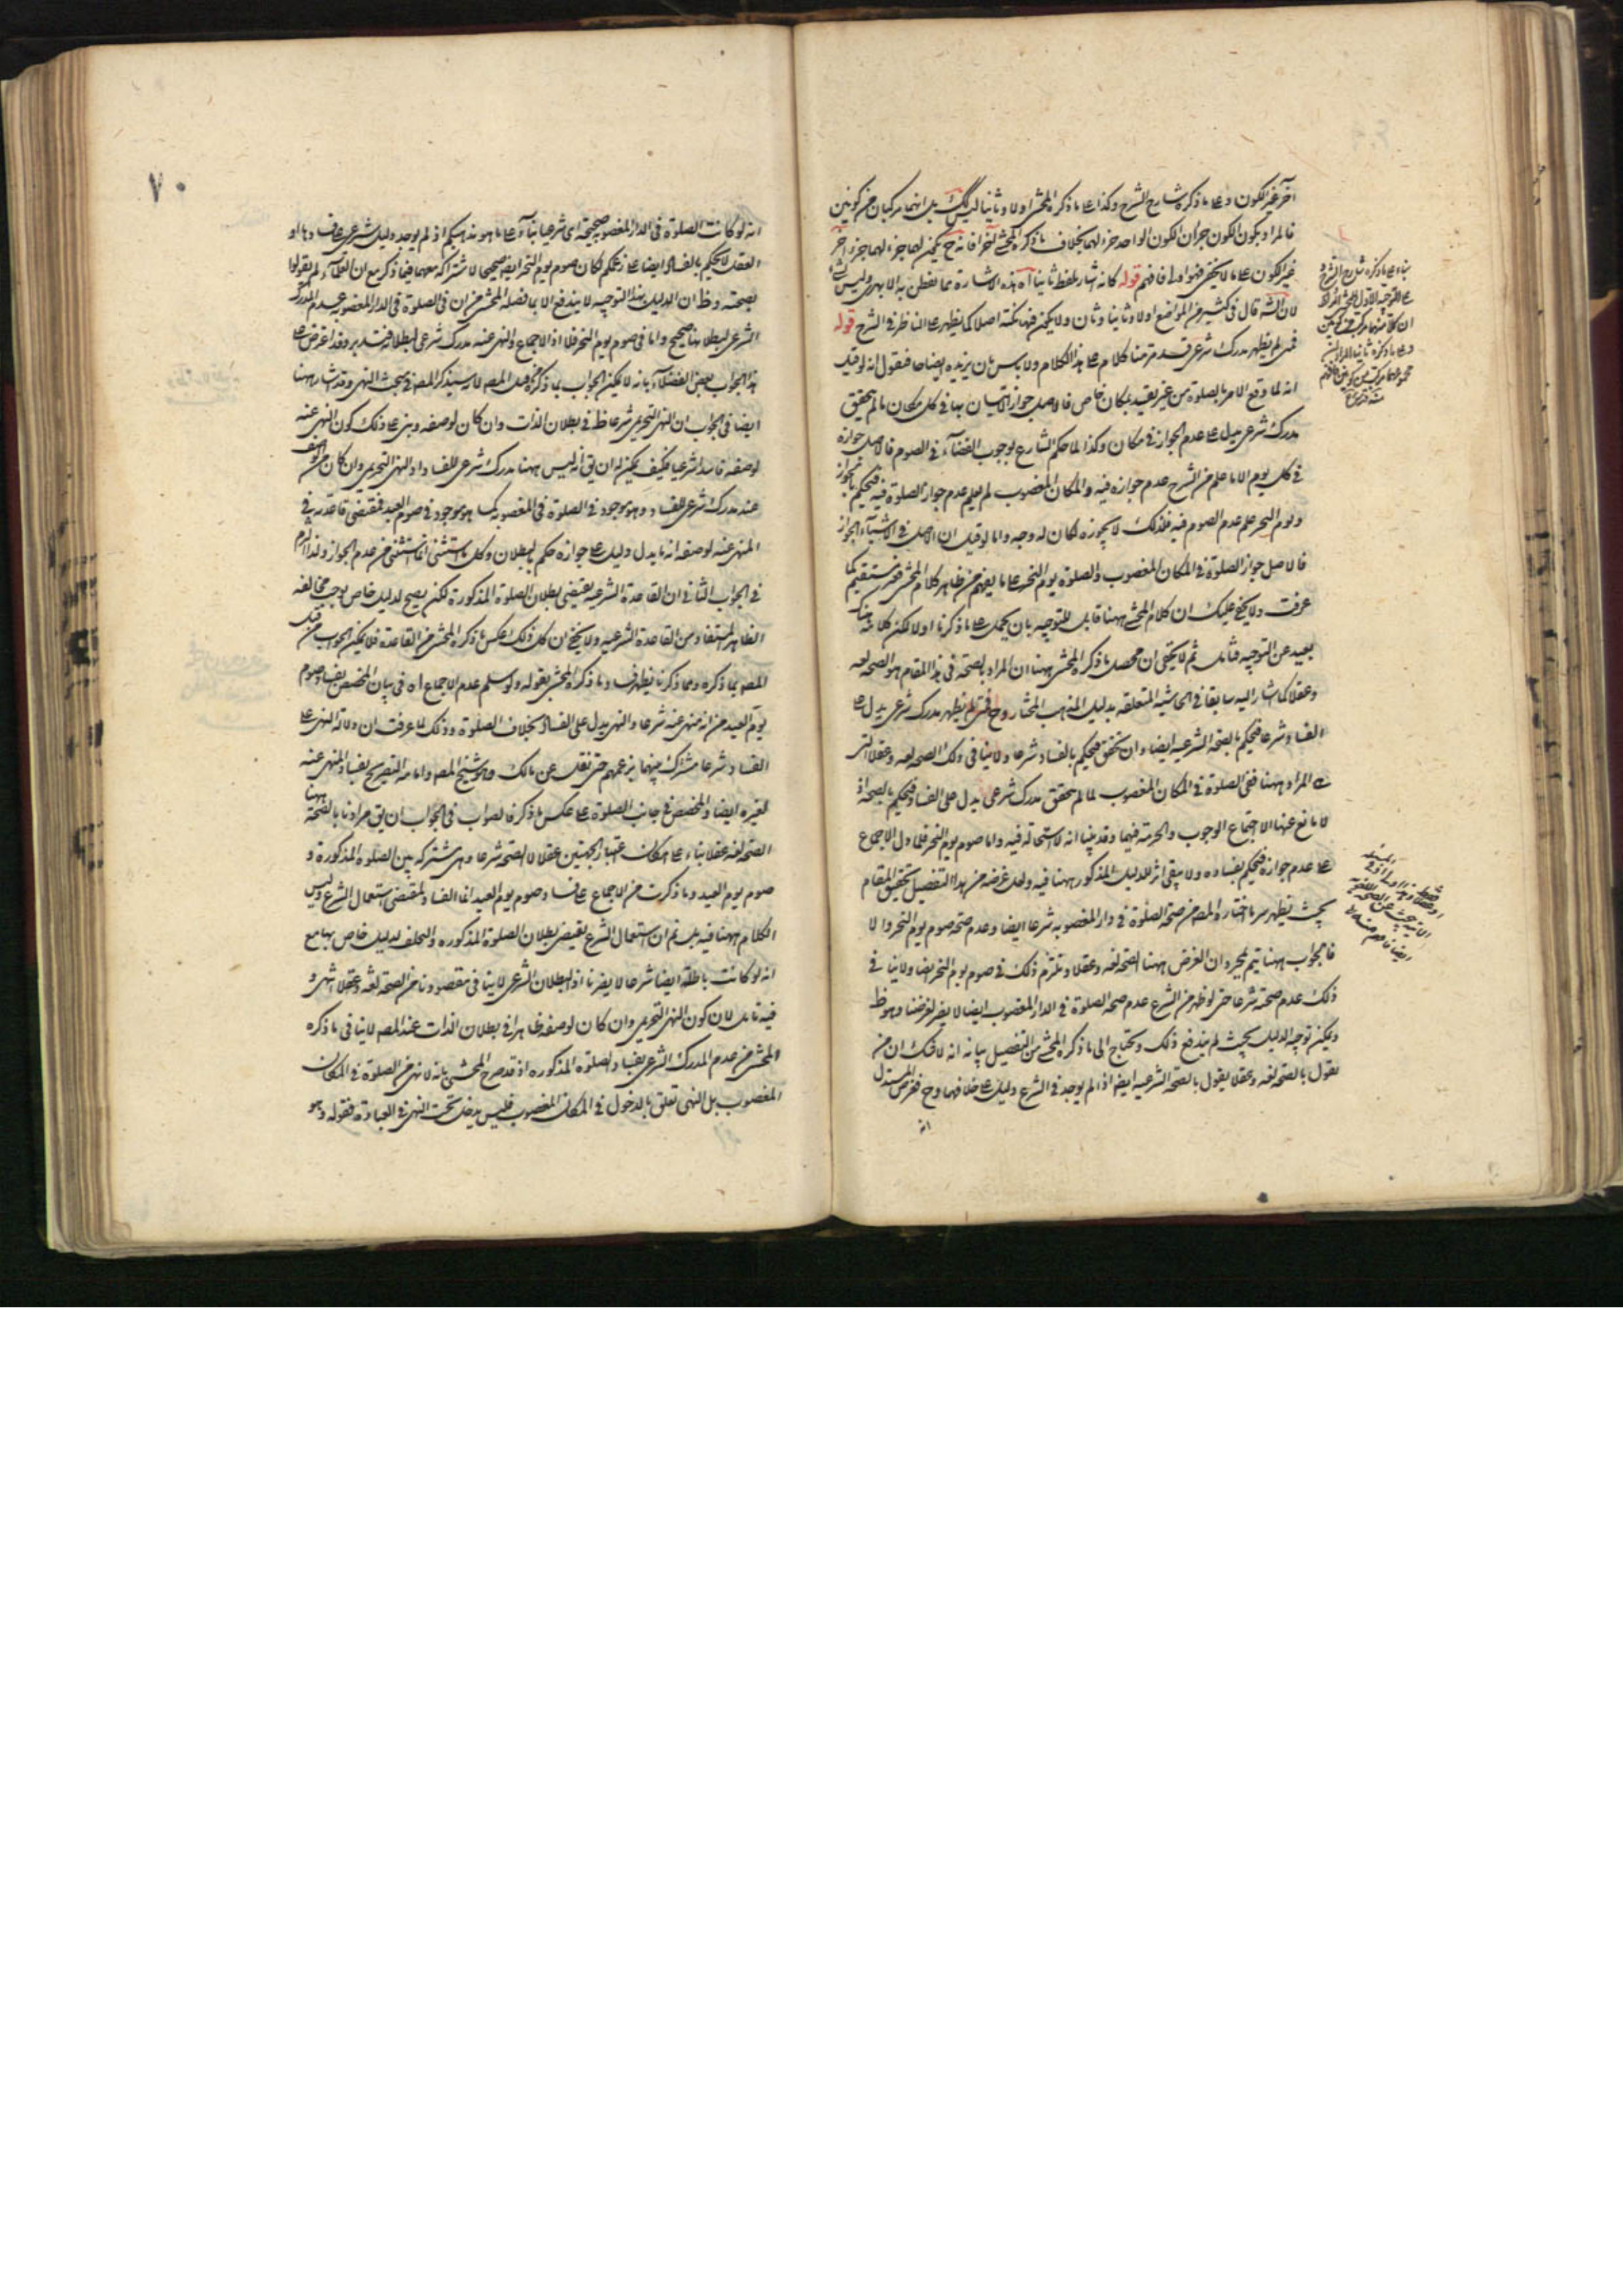 آخر غير الكون وعلى ما ذكره شارح الشرح وكذا على ما ذكره المحشى اولا وثانيا ليس كك بل انهما مركبان من كونين
فالمراد بكون الكون جزءان الكون الواحد جزء لهما بخلاف ما ذكره المحشى آخرا فانه ح يكون لهما جزء لهما جزء آخر
غير الكون على ما لا يخفى فهو اولى فافهم قوله كانه اشار بلفظ ثانيا آه هذه الاشارة مما يفطن به الا بهرى وليس بشئ
لان الشه قال فى كثير من المواضع اولا وثانيا وثان ولا يمكن فيها نكتة اصلا كما يظهر على الناظر فى الشرح قوله
فمن لم يظهر مدرك شرعى قد مر منا كلام على هذا الكلام ولا باس بان يزيده ايضاحا فنقول انه لو قيل
انه لما وقع الامر بالصلوة من غير تقييد بمكان خاص فالاصل جواز الاتيان بها فى كل مكان ما لم يتحقق
مدرك شرعى يدل على عدم الجواز فى مكان وكذا لما حكم الشارع بوجوب القضاء فى الصوم فالاصل جوازه
فى كل يوم الا ما علم من الشرح عدم جوازه فيه والمكان المغصوب لم يعلم عدم جواز الصلوة فيه فيحكم بالجواز
ويوم النحر علم عدم الصوم فيه فلذلك لا يجوزه لكان له وجه واما لو قيل ان الاصل فى الاشياء الجواز
فالاصل جواز الصلوة فى المكان المغصوب والصلوة يوم النحر على ما يفهم من ظاهر كلام المحشى فغير مستقيم كما
عرفت ولا يخفى عليك ان كلام المحشى ههنا قابل للتوجيه بان يحمل على ما ذكرنا اولا لكن كلامه هناك
بعيد عن التوجيه فتامل ثم لا يخفى ان محصل ما ذكره المحشى ههنا ان المراد بالصحة فى هذا المقام هو الصحة لغة
وعقلا كما اشار اليه سابقا فى الحاشية المتعلقة بدليل المذهب المختار وح فمتى لم يظهر مدرك شرعى يدل على
الفساد شرعا فيحكم بالصحة الشرعية ايضا وان تحقق فيحكم بالفساد شرعا ولا ينافى ذلك الصحة لغة وعقلا التى
هى المراد ههنا ففى الصلوة فى المكان المغصوب لما لم يتحقق مدرك شرعى يدل على الفساد فيحكم بالصحة اذ
لا مانع عنها الا اجتماع الوجوب والحرمة فيهما وقد بينا انه لا استحالة فيه واما صوم يوم النحر فلما دل الاجماع
على عدم جوازه فيحكم بفساده ولا يبقى اثر للدليل المذكور ههنا فيه ولعل غرضه من هذا التفصيل تحقيق المقام
بحيث يظهر سر ما اختاره المصه من صحة الصلوة فى دار المغصوبة شرعا ايضا وعدم صحة صوم يوم النحر والا
فالجواب ههنا يتم بمجرد ان الغرض ههنا الصحة لغة وعقلا ونلتزم ذلك فى صوم يوم النحر ايضا ولا ينافى
ذلك عدم صحته شرعا حتى لو ظهر من الشرع عدم صحة الصلوة فى الدار المغصوب ايضا لا يضر لغرضنا وهو ظ
ويمكن توجيه الدليل بحيث لم يندفع ذلك ويحتاج الى ما ذكره المحشى من التفصيل بيانه انه لا شك ان من
يقول بالصحة لغة وعقلا يقول بالصحة الشرعية ايضا اذا لم يوجد فى الشرع دليل على خلافها وح فغرض المستدل
انه
٧٠
انه لو كانت الصلوة فى الدار المغصوبة صحيحة اى شرعيا بناء على ما هو مذهبكم اذ لم يوجد دليل شرعى على فسادها او
العقل لا يحكم بالفساد ايضا على زعمكم لكان صوم يوم النحر ايضا صحيحا لاشتراكه معها فيما ذكر مع ان العلماء لم يقولوا
بصحته وظ ان الدليل بهذا التوجيه لا يندفع الا بما فصله المحشى من ان فى الصلوة فى الدار المغصوبة عدم المدرك
الشرعى لبطلانها صحيح واما فى صوم يوم النحر فلا اذ الاجماع والنهى عنه مدرك شرعى لبطلانه فتدبر وقد اعترض على
هذا الجواب بعض الفضلاء بانه لا يمكن الجواب بما ذكره من قبل المصه لا سيذكر المصه فى مبحث النهى وقد اشار ههنا
ايضا فى الجواب ان النهى التحريمى شرعا ظ فى بطلان الذات وان كان لوصفه وبنى على ذلك كون النهى عنه
لوصفه فاسدا شرعيا فكيف يمكن له ان يق انه ليس ههنا مدرك شرعى للفساد اذ النهى التحريمى وان كان من الوصف
عنده مدرك شرعى للفساد وهو موجود فى الصلوة فى المغصوبة كما هو موجود فى صوم العيد فمقتضى قاعدته فى
المنهى عنه لوصفه انه ما يدل دليل على جوازه حكم بالبطلان وكل ما استثنى انما استثنى من عدم الجواز ولذا التزم
فى الجواب الثانى ان القاعدة الشرعية يقتضى بطلان الصلوة المذكورة لكن يصح لدليل خاص يوجب مخالفة
الظاهر المستفاد من القاعدة الشرعية ولا يخفى ان كل ذلك عكس ما ذكره المحشى من القاعدة فلا يمكن الجواب من قبل
المصه بما ذكره ومما ذكرنا يظهر فساد ما ذكره المحشى بقوله ولو سلم عدم الاجماع اه فى بيان المخصص بفساد صوم
يوم العيد من انه منهى عنه شرعا والنهى يدل على الفساد بخلاف الصلوة وذلك لما عرفت ان دلالة النهى على
الفساد شرعا مشترك بينهما بزعمهم حتى نقل عن مالك وهو شيخ المصه وامامه التصريح بفساد المنهى عنه
لغيره ايضا والمخصص فى جانب الصلوة على عكس ما ذكر فالصواب فى الجواب ان يق مرادنا بالصحة ههنا
الصحة لغة عقلا بناء على امكان اعتبار الجهتين عقلا لا الصحة شرعا وهى مشتركة بين الصلوة المذكورة و
صوم يوم العيد وما ذكرت من الاجماع على فساد صوم يوم العيد انما الفساد بمقتضى استعمال الشرع وليس
الكلام ههنا فيه بل نعم ان استعمال الشرع يقتضى بطلان الصلوة المذكورة والتخلف لدليل خاص بها مع
انه لو كانت باطلة ايضا شرعا لا يضرنا اذ البطلان الشرعى لا ينافى مقصودنا من الصحة لغة وعقلا انتهى و
فيه تامل لان كون النهى التحريمى وان كان لوصفه ظاهرا فى بطلان الذات عند المصه لا ينافى ما ذكره
المحشى من عدم المدرك الشرعى بفساد الصلوة المذكورة اذ قد صرح المحشى بانه لا نهى من الصلوة فى المكان
المغصوب بل النهى تعلق بالدخول فى المكان المغصوب فليس يدخل تحت النهى فى العبادة فقوله وهو